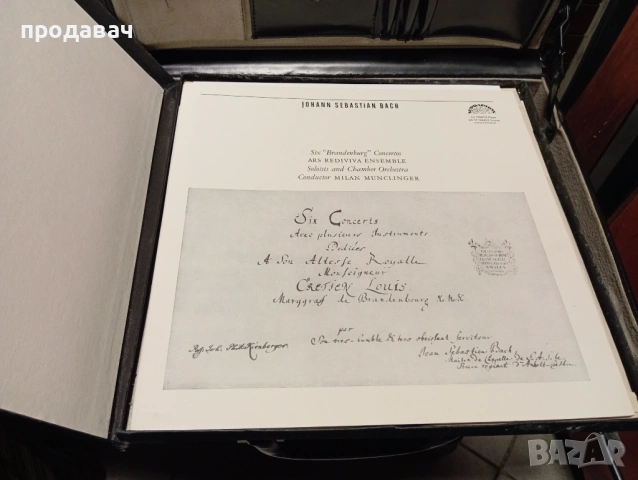 продавач
JOHANN SEBASTIAN BACH
SUPRAPHON
Six "Brandenburg" Concertos
ARS REDIVIVA ENSEMBLE
Soloists and Chamber Orchestra
Conductor MILAN MUNCLINGER
Six Concerts
Avec plusieurs Instruments
Dediées
A Son Altesse Royalle
Monseigneur
Cretien Louis
Marggraf de Brandenbourg &c &c &c
par
Son tres-humble & tres obeissant serviteur
Jean Sebastien Bach
Maitre de Chapelle de S. A. le
Prince regnant d'Anhalt
BAZAR
bg